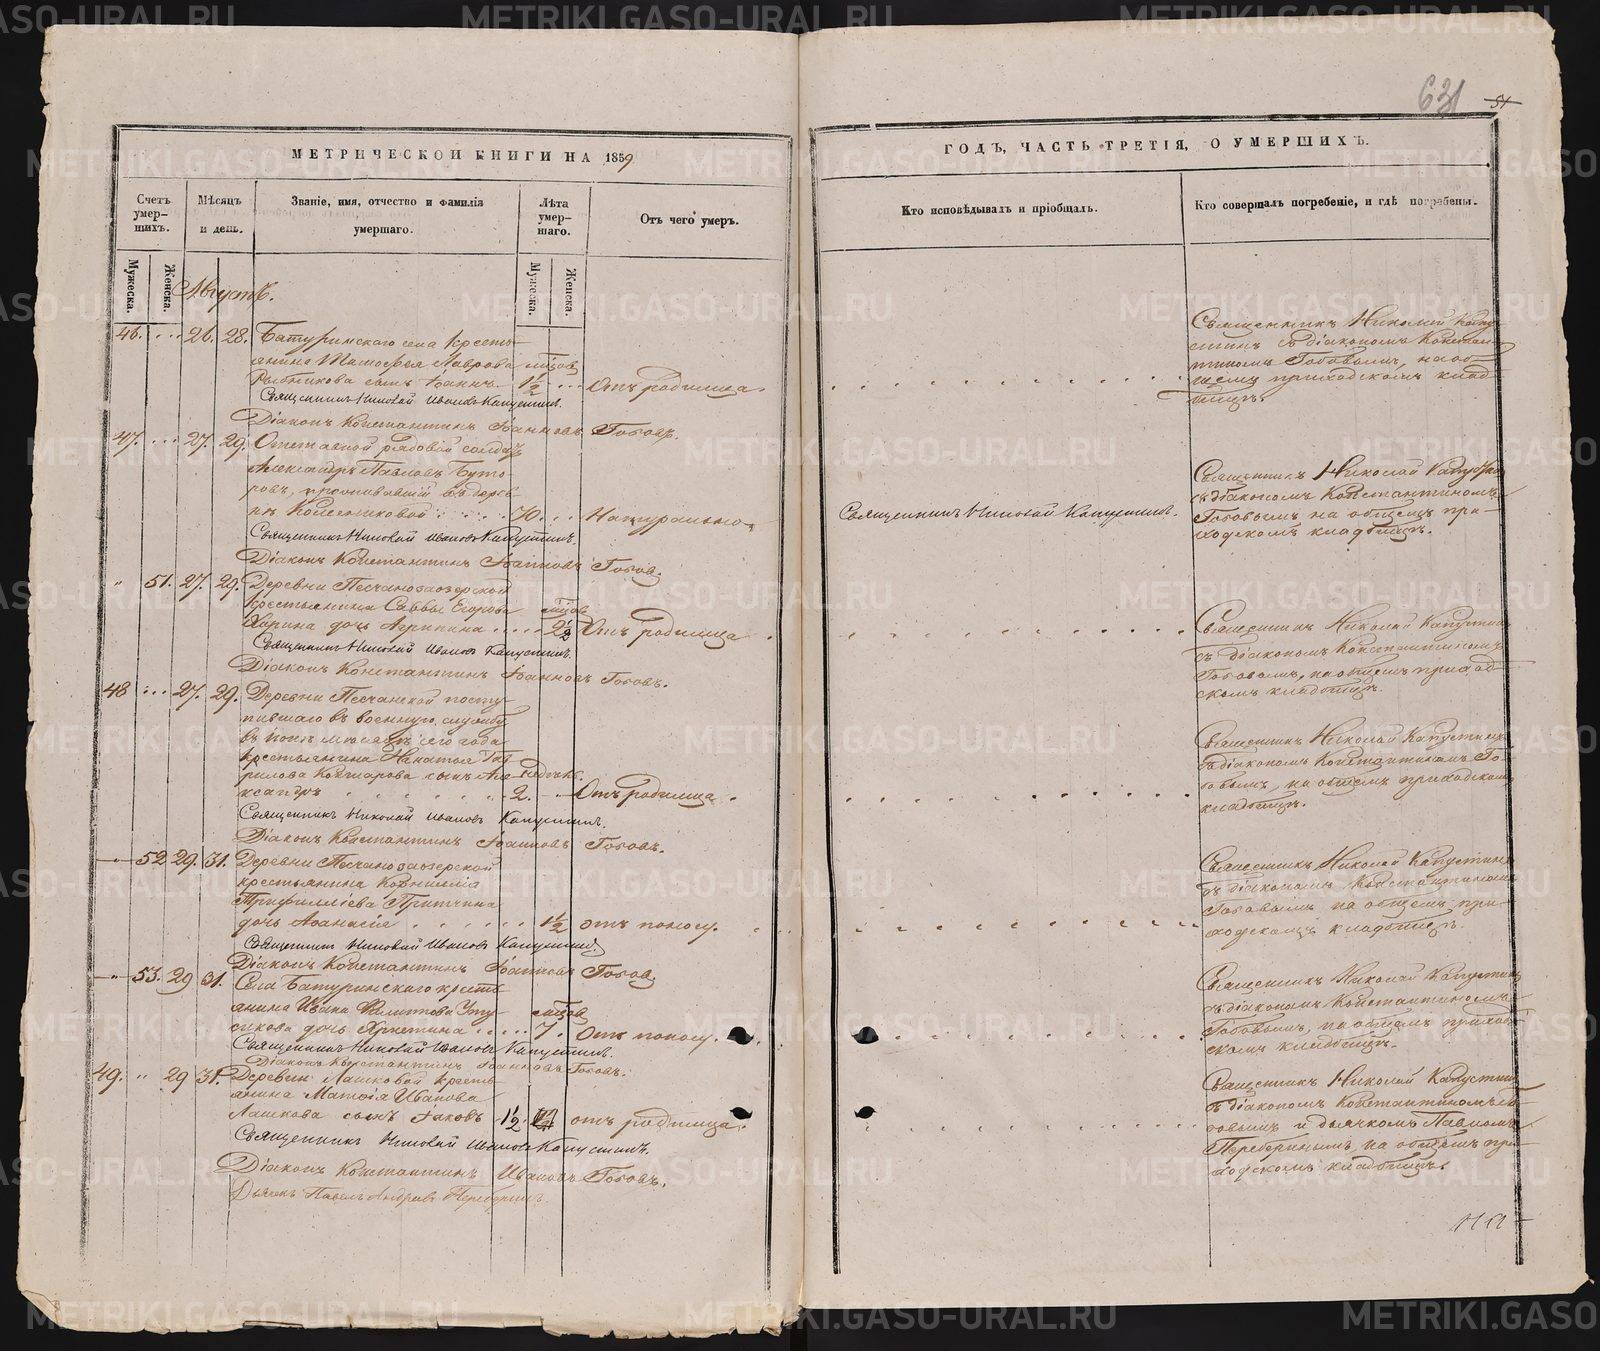 631 51
МЕТРИЧЕСКОЙ КНИГИ НА 1859
ГОДЪ, ЧАСТЬ ТРЕТІЯ, О УМЕРШИХЪ.
Счетъ умер-
шихъ.
Мѣсяцъ
и день.
Званіе, имя, отчество и фамилія
умершаго.
Лѣта
умер-
шаго.
Отъ чего умеръ.
Кто исповѣдывалъ и пріобщалъ.
Кто совершалъ погребеніе, и гдѣ погребены.
Мужеска.
Женска.
Мужеска.
Женска.
Августъ.
46. 26. 28. Батуринскаго села кресть-
янина Тимофея Лаврова мѣсяц.
сынъ Іоаннъ 1½ Отъ родимца
Священникъ Николай Ивановъ Капустинъ.
Діаконъ Константинъ Іоанновъ Гобовъ.
Священникъ Николай Капу-
стинъ съ діакономъ Констан-
тиномъ Гобовымъ, на об-
щемъ приходскомъ клад-
бищѣ.
47. 27. 29. Отставной рядовой солдатъ
Александръ Павловъ Буто-
ровъ, проживавшій въ дерев-
нѣ Колесниковой 70. Натурально
Священникъ Николай Ивановъ Капустинъ.
Діаконъ Константинъ Іоанновъ Гобовъ.
Священникъ Николай Капустинъ.
Священникъ Николай Капустинъ
съ діакономъ Константиномъ
Гобовымъ на общемъ при-
ходскомъ кладбищѣ.
" 51. 27. 29. Деревни Песчаноозерской
крестьянина Саввы Егорова мѣсяц.
дочь Агрипина 2½ Отъ родимца
Священникъ Николай Ивановъ Капустинъ.
Діаконъ Константинъ Іоанновъ Гобовъ.
Священникъ Николай Капустинъ
съ діакономъ Константиномъ
Гобовымъ, на общемъ приход-
скомъ кладбищѣ.
48 27. 29. Деревни Песчанской посту-
пившаго въ военную службу
въ мѣсяцѣ сего года
крестьянина
рилова сынъ Але- недѣль.
ксандръ 2. Отъ родимца
Священникъ Николай Ивановъ Капустинъ.
Діаконъ Константинъ Іоанновъ Гобовъ.
Священникъ Николай Капустинъ
съ діакономъ Константиномъ Го-
бовымъ, на общемъ приходскомъ
кладбищѣ.
52 29. 31. Деревни Песчаноозерской
крестьянина Корнилія
Трифиллієва
дочь Аѳанасія 1½ отъ поносу.
Священникъ Николай Ивановъ Капустинъ
Діаконъ Константинъ Іоанновъ Гобовъ
Священникъ Николай Капустинъ
съ діакономъ Константиномъ
Гобовымъ на общемъ при-
ходскомъ кладбищѣ.
" 53. 29 31. Села Батуринскаго кресть-
янина Ивана Филиппова Уту- мѣсяц.
сикова дочь Христина 7. Отъ поносу.
Священникъ Николай Ивановъ Капустинъ.
Діаконъ Константинъ Іоанновъ Гобовъ.
Священникъ Николай Капустинъ
съ діакономъ Константиномъ
Гобовымъ, на общемъ приход-
скомъ кладбищѣ.
49. " 29 31. Деревни Лашковой кресть-
янина Матѳія Иванова
Лашкова сынъ Іаковъ 1½. отъ родимца.
Священникъ Николай Ивановъ Капустинъ.
Діаконъ Константинъ Ивановъ Гобовъ.
Дьячекъ Павелъ Андреевъ
Священникъ Николай Капустинъ
съ діакономъ Константиномъ Го-
бовымъ и дьячкомъ Павломъ
на общемъ при-
ходскомъ кладбищѣ.